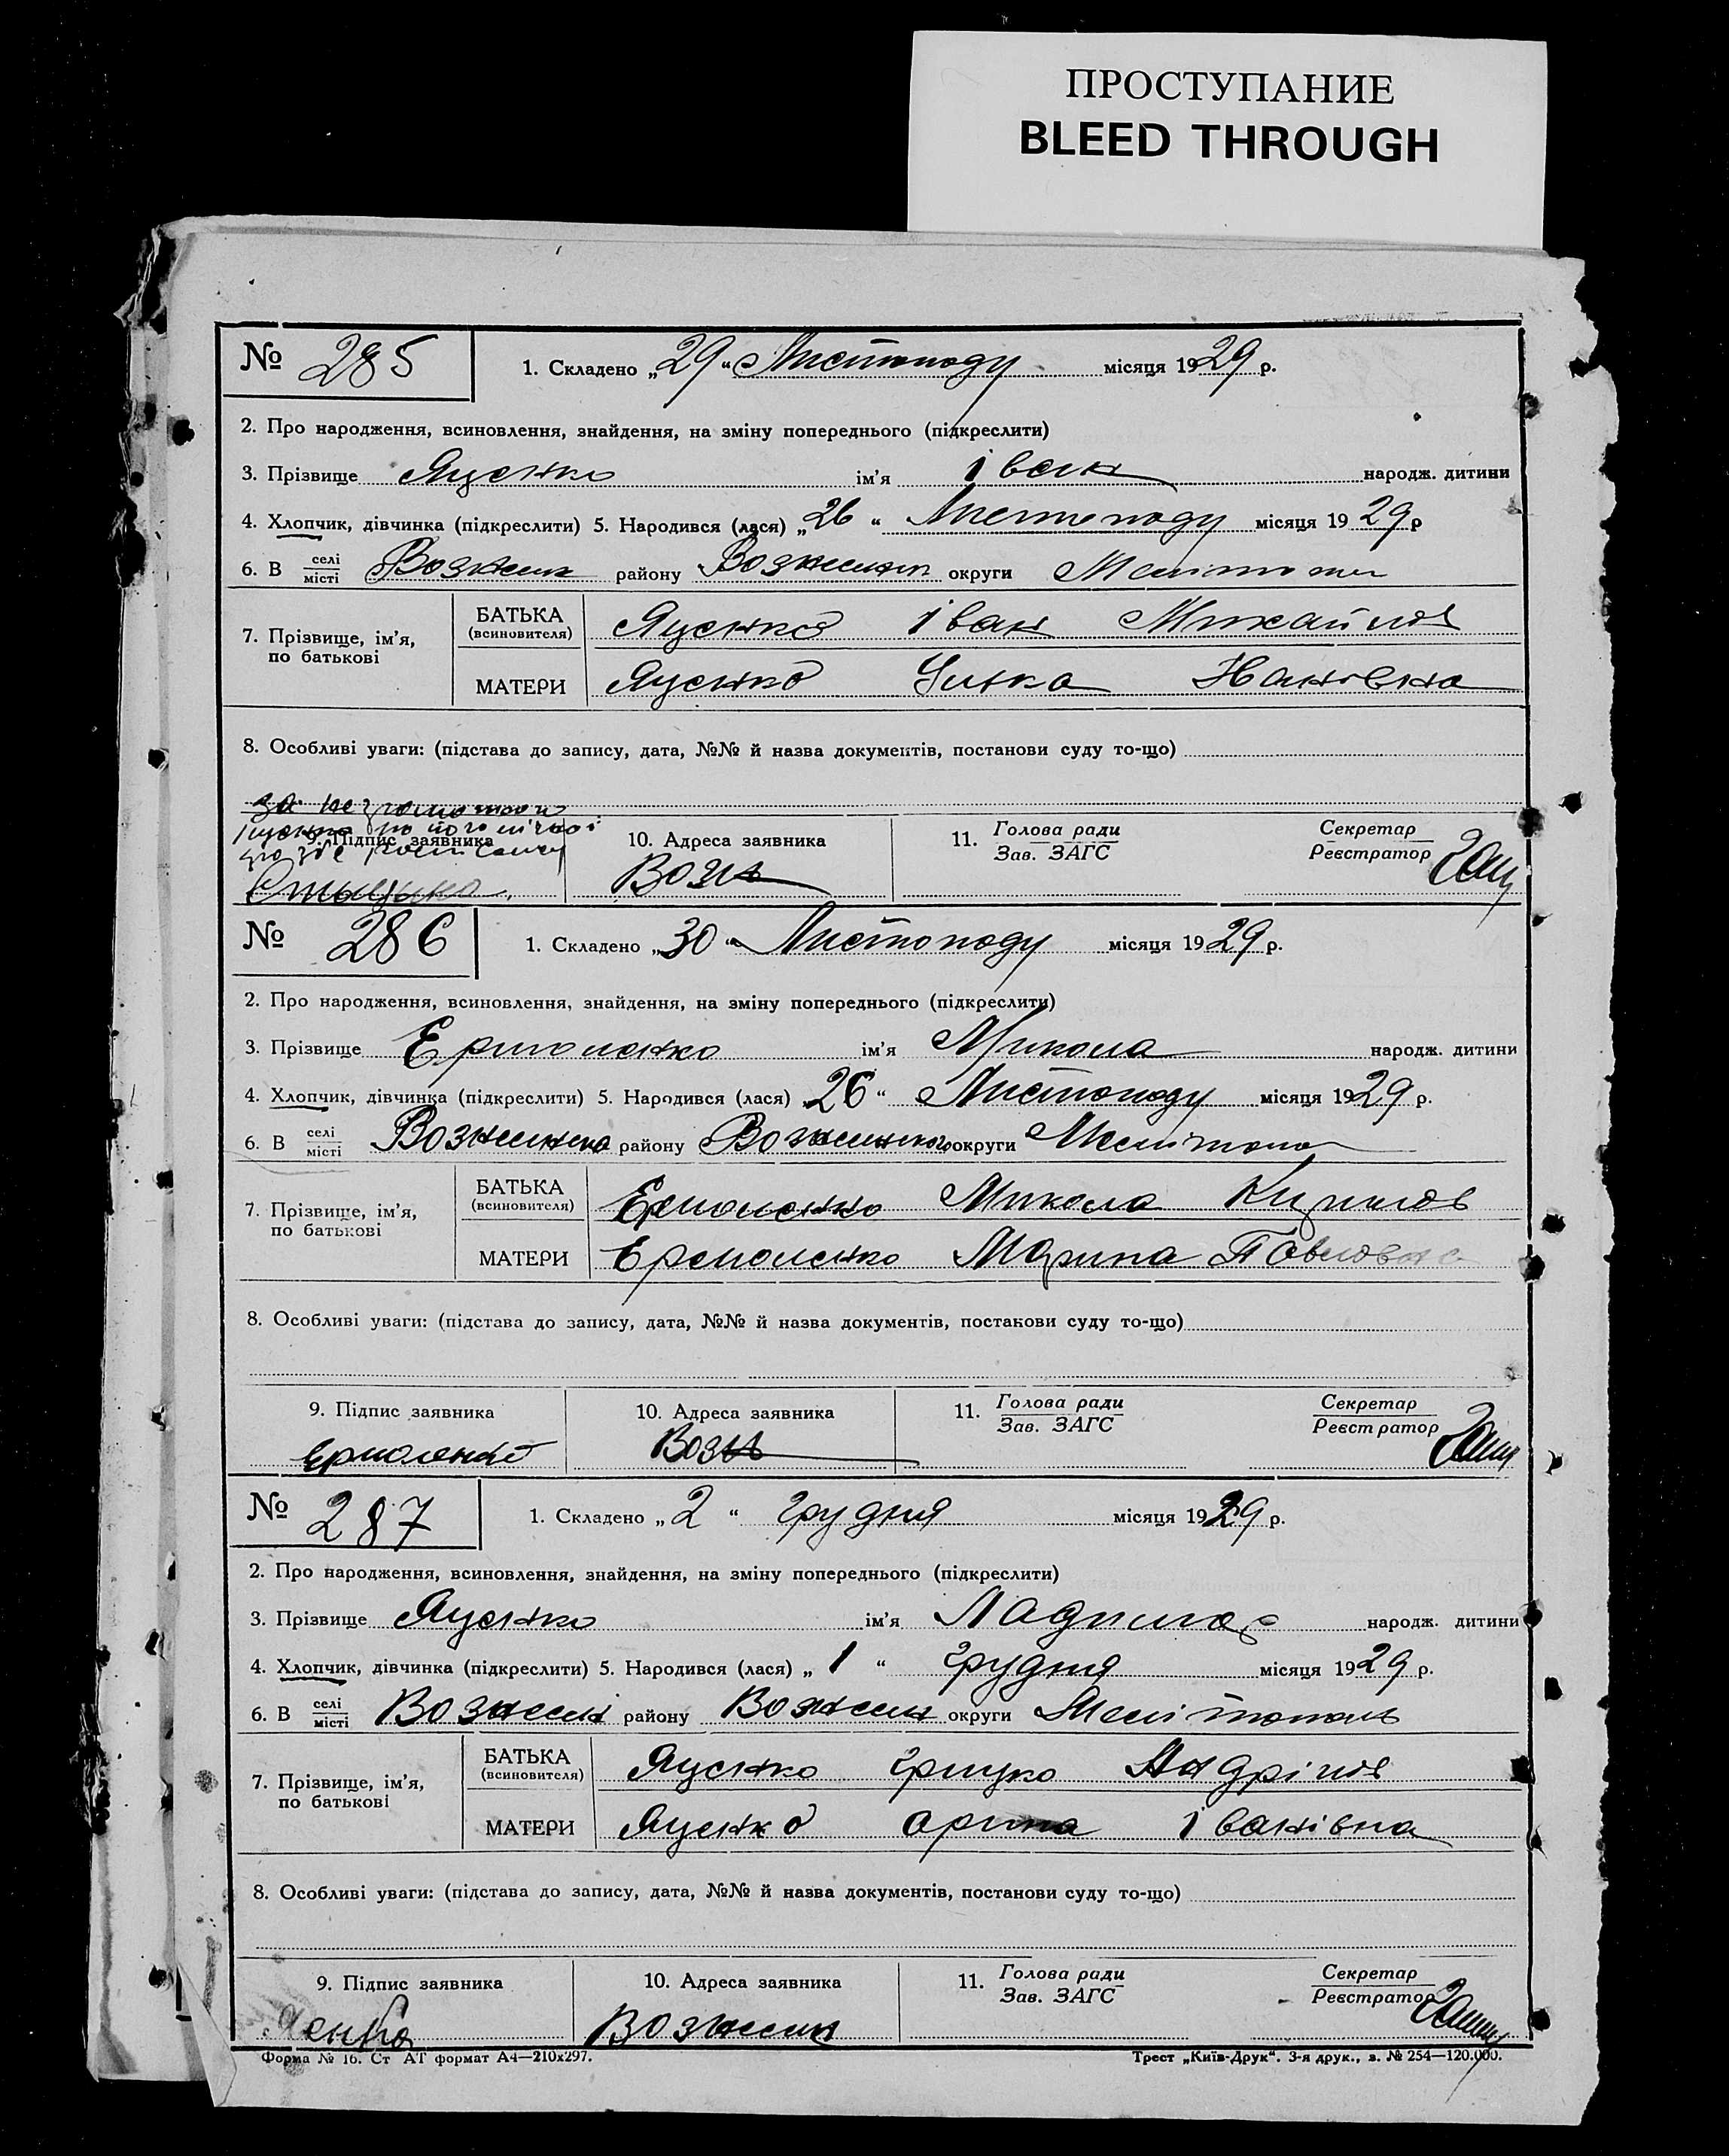 ПРОСТУПАНИЕ
BLEED THROUGH
№ 285 1. Складено „29“ Листопаду місяця 1929 р.
2. Про народження, всиновлення, знайдення, на зміну попереднього (підкреслити)
3. Прізвище Яценко ім’я Іван народж. дитини
4. Хлопчик, дівчинка (підкреслити) 5. Народився (лася) „26“ Листопаду місяця 1929 р
6. В селі місті району округи
7. Прізвище, ім’я, по батькові
БАТЬКА (всиновителя) Яценко Іван Михайлов
МАТЕРИ Яценко
8. Особливі уваги: (підстава до запису, дата, №№ й назва документів, постанови суду то-що)
9. Підпис заявника 10. Адреса заявника Возн 11. Голова ради Зав. ЗАГС Секретар Реєстратор
№ 286 1. Складено „30“ Листопаду місяця 1929 р.
2. Про народження, всиновлення, знайдення, на зміну попереднього (підкреслити)
3. Прізвище Ермоленко ім’я Микола народж. дитини
4. Хлопчик, дівчинка (підкреслити) 5. Народився (лася) 26“ Листопаду місяця 1929 р.
6. В селі місті району округи
7. Прізвище, ім’я, по батькові
БАТЬКА (всиновителя) Ермоленко Микола Кирилов
МАТЕРИ Ермоленко Марина Павловна
8. Особливі уваги: (підстава до запису, дата, №№ й назва документів, постанови суду то-що)
9. Підпис заявника Ермоленко 10. Адреса заявника Возн 11. Голова ради Зав. ЗАГС Секретар Реєстратор
№ 287 1. Складено „2“ грудня місяця 1929 р.
2. Про народження, всиновлення, знайдення, на зміну попереднього (підкреслити)
3. Прізвище Яценко ім’я народж. дитини
4. Хлопчик, дівчинка (підкреслити) 5. Народився (лася) „1“ грудня місяця 1929 р.
6. В селі місті району округи Мелітополь
7. Прізвище, ім’я, по батькові
БАТЬКА (всиновителя) Яценко Грицко
МАТЕРИ Яценко Орина Іванівна
8. Особливі уваги: (підстава до запису, дата, №№ й назва документів, постанови суду то-що)
9. Підпис заявника 10. Адреса заявника 11. Голова ради Зав. ЗАГС Секретар Реєстратор
Форма № 16. Ст АТ формат А4—210х297. Трест „Київ-Друк“. 3-я друк., з. № 254—120.000.